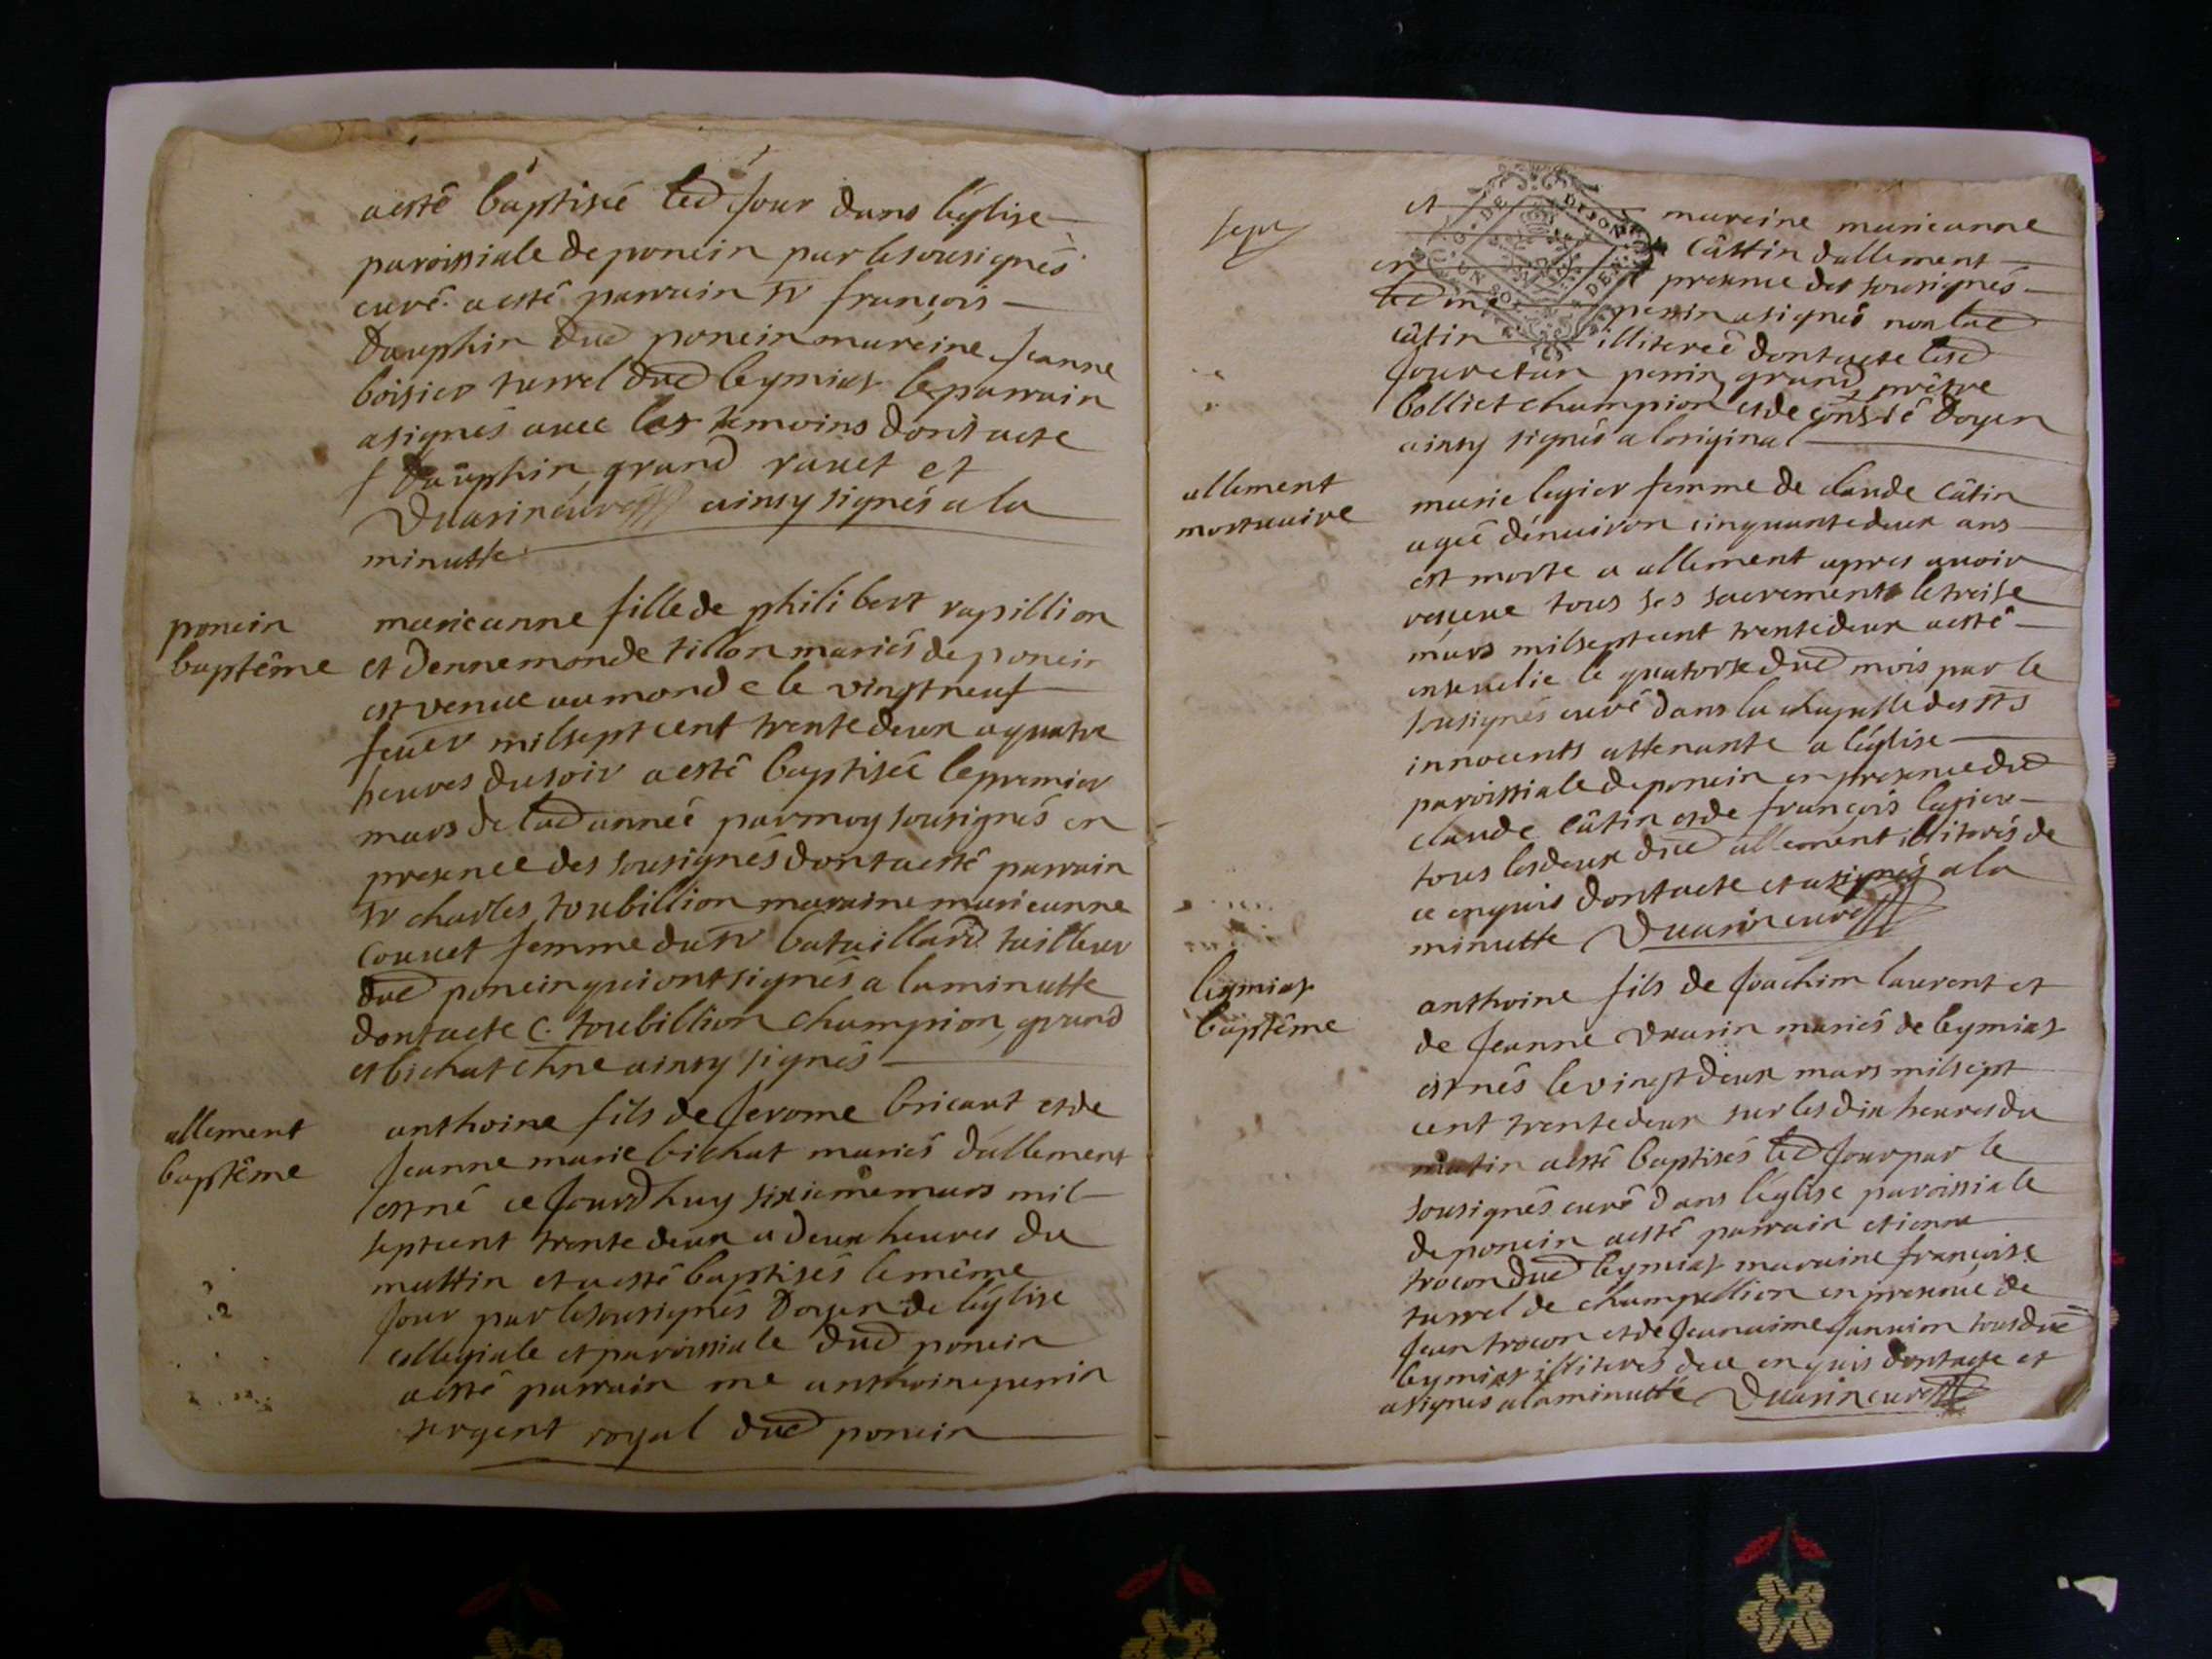 a esté baptisée led jour dans léglise
paroissiale de poncin par le sousignés
curé a esté parrain sr françois
dauphin dud poncin mareine jeanne
boisier turrel dud leymiat le parrain
a signés avec les temoins dont acte
f dauphin grand ravet et
Duarin curé ainsy signés a la
minutte
poncin
baptême
marieanne fille de philibert rapillion
et dennemonde tillon mariés de poncin
est venue au monde le vingt neuf
feuer mil sept cent trente deux a quatre
heures du soir a esté baptisée le premier
mars de lad année par moy sousignés en
presence des sousignés dont a esté parrain
sr charles toubillion maraine marieanne
couuet femme du sr bataillard tailleur
dud poncin qui ont signés a la minutte
dont acte C. toubillion champion, grand
et bichat chne ainsy signés
allement
baptême
anthoine fils de Jerome bricart et de
Jeanne marie bichat mariés dallement
est né ce jourdhuy sixieme mars mil
sept cent trente deux a deux heures du
mattin et a esté baptisés le même
jour par le sousignés Doyen de léglise
collegiale et paroissiale dud poncin
a esté parrain me anthoine perrin
sergent royal dud poncin
sept
et mareine marieanne
câttin dallement
en presence des sousignés
led me perrin a signés non lad
câtin illiterée dont acte lesd
jour et an perrin, grand, prêtre
bolliet champion et de Doyen
ainsy signés a loriginal
allement
mortuaire
marie legier femme de claude câtin
agée dénuiron cinquante deux ans
est morte a allement apres auoir
receue tous ses sacrements le treise
mars mil sept cent trente deux a esté
enseuelie le quatorse dud mois par le
susignés curé dans la chapelle des sts
innocents attenante a léglise
paroissiale de poncin en presence dud
claude câtin et de françois legier
tous les deux dud allement illiterés de
ce enquis dont acte et a signés a la
minutte Duarin curé
leymiat
baptême
anthoine fils de Joachim laurent et
de Jeanne Duarin mariés de leymiat
est nés le vingt deux mars mil sept
cent trente deux sur les dix heures du
matin a esté baptisés led jour par le
sousignés curé dans léglise paroissiale
de poncin a esté parrain etienne
trocon dud leymiat maraine françoise
turrel de champellion en presence de
Jean trocon et de Jeanaime Janin tous dud
leymiat illiteres de ce enquis dont acte et
a signés a la minutte Duarin curé